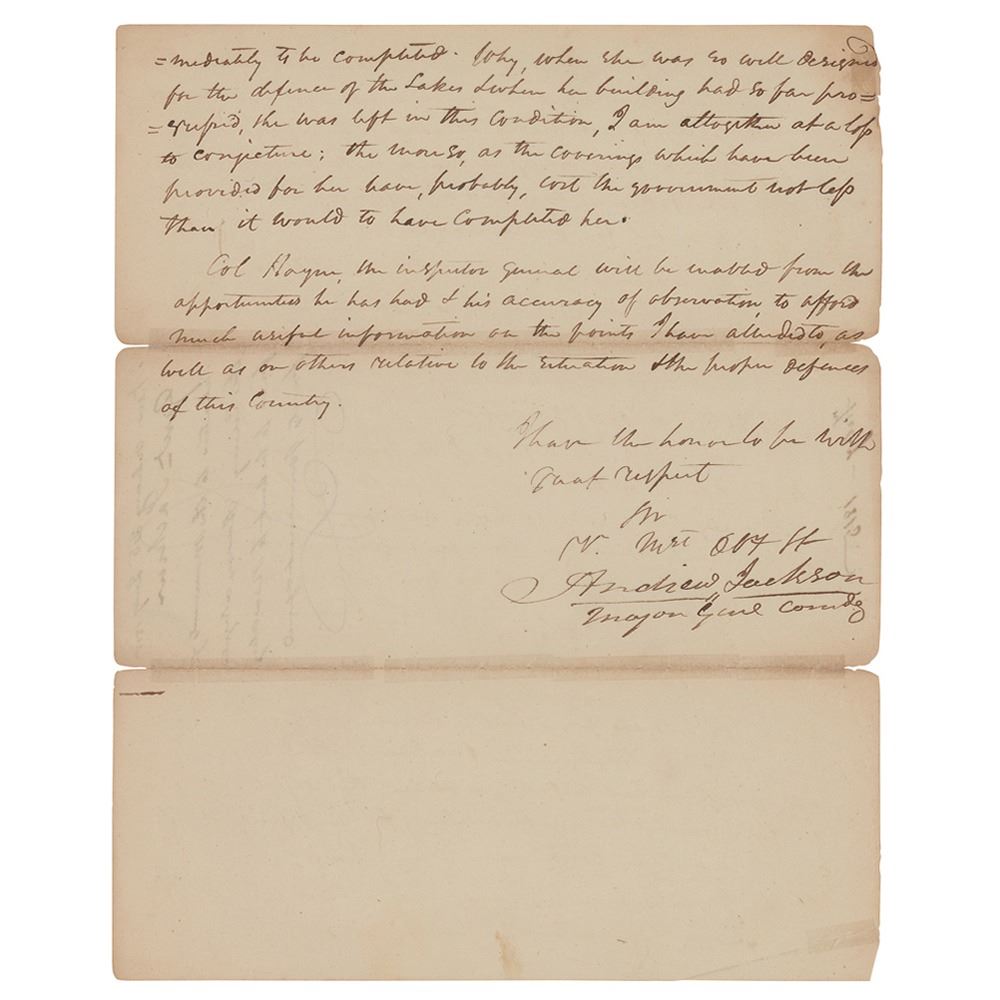 =mediately to be completed. Why, when she was so well designed
for the defence of the Lakes & when her building had so far pro=
=gressed, she was left in this Condition, I am altogether at a loss
to conjecture; the more so, as the coverings which have been
provided for her have, probably, cost the government not less
than it would to have Completed her.
Col Hayne, the inspector General will be enabled from the
opportunities he has had & his accuracy of observation, to afford
much useful information on the points I have alluded to, as
well as on others relative to the situation & the proper defences
of this Country.
I have the honor to be with
great respect
Sir
V. Mst Obt St
Andrew Jackson
Major Genl Comdg